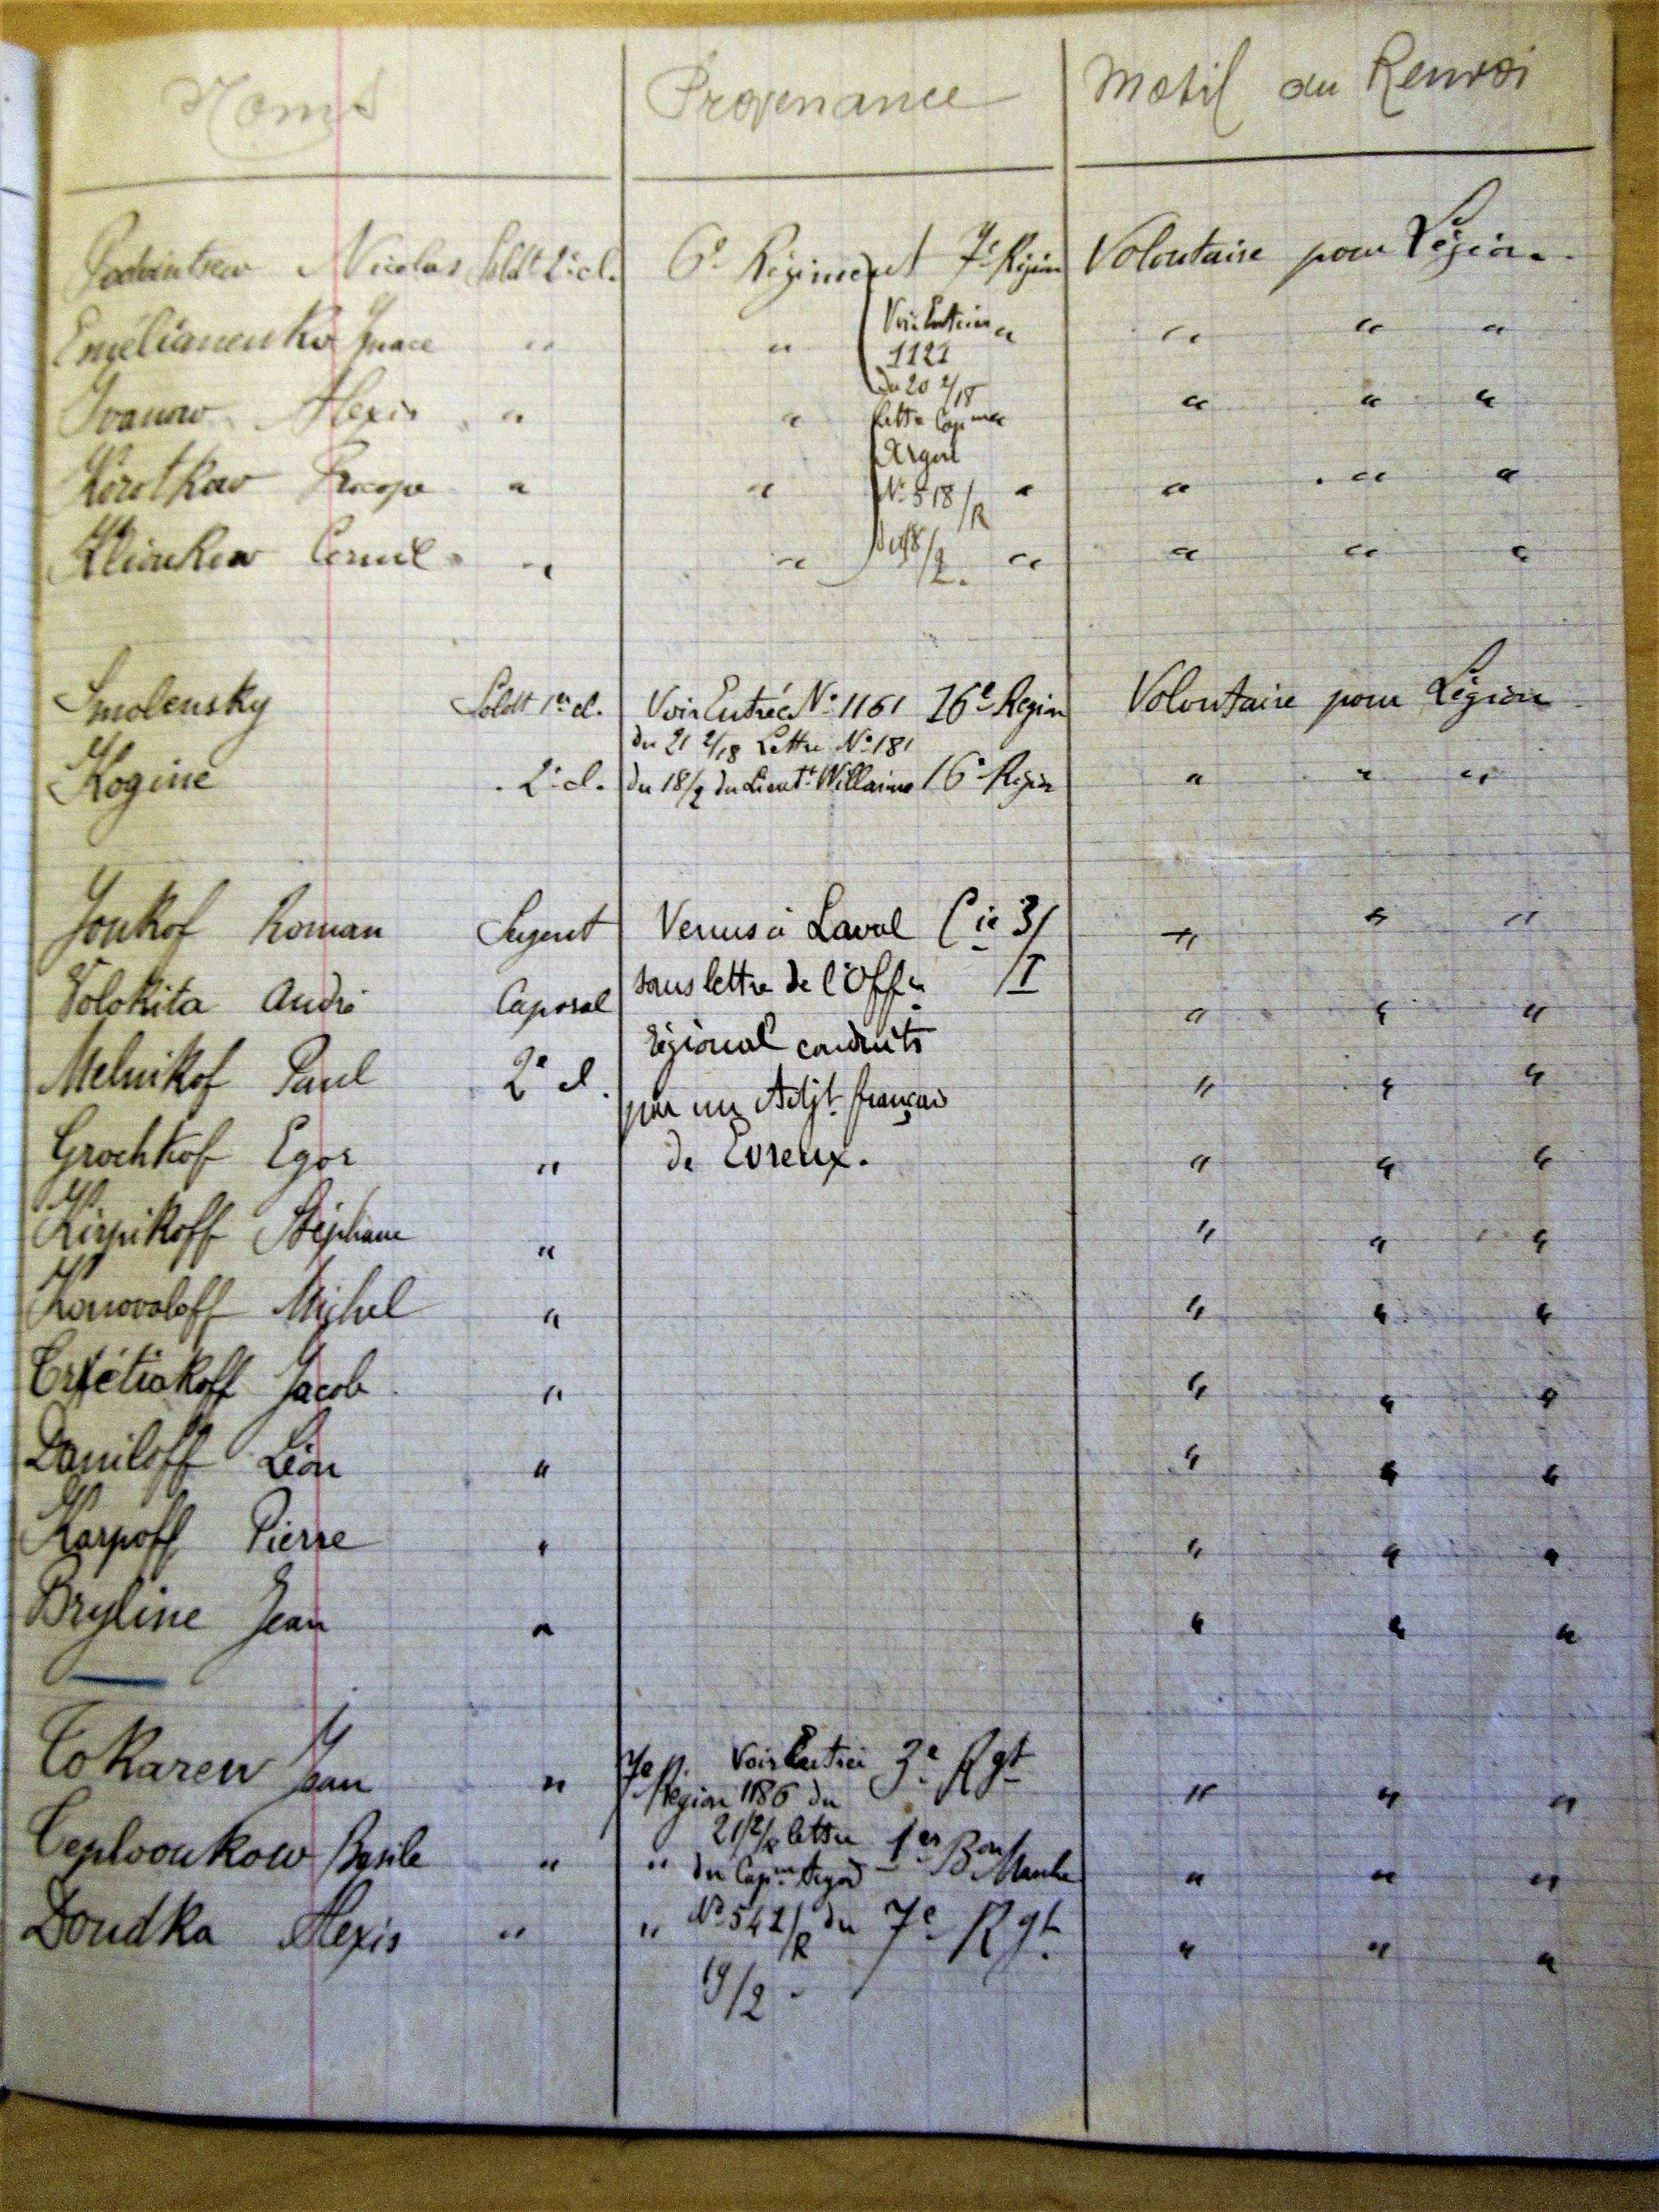 Noms Provenance Motif du Renvoi
Nicolas Soldt 2e cl. 6e Régiment 7e Région Volontaire pour Légion.
Emélianenko Ignace " " Voir Entrée " " " "
1121
du 20 2/18
Ivanow Alexis " " Lettre Capne " " "
Argod
Korotkow Procope " " No 518/R " " " "
Klioukow Cornil " " du 18/2. " " " "
Smolensky Soldt 1re cl. Voir Entrée No 1161 16e Région Volontaire pour Légion
du 21 2/18 Lettre No 181
Kogine 2e cl. du 18/2 du Lieutt Willaime 16e Région " " "
Joukof Roman Sergent Venus à Laval Cie 3/I " " "
Volokita André Caporal sous lettre de l'Offer " " "
régional conduits
Melnikof Paul 2e cl. par un Adjt français " " "
Grochkof Egor " de Evreux. " " "
Kirpikoff Stéphane " " " "
Konovaloff Michel " " " "
Trétiakoff Jacob " " " "
Daniloff Léon " " " "
Karpoff Pierre " " " "
Bryline Jean " " " "
Tokarew Jean " 7e Région Voir Entrée 3e Rgt " " "
1186 du
21/2/18 lettre
Teplooukow Basile " " du Capne Argod 1er Bon Marche " " "
Doudka Alexis " " No 542/R du 7e Rgt. " " "
19/2.